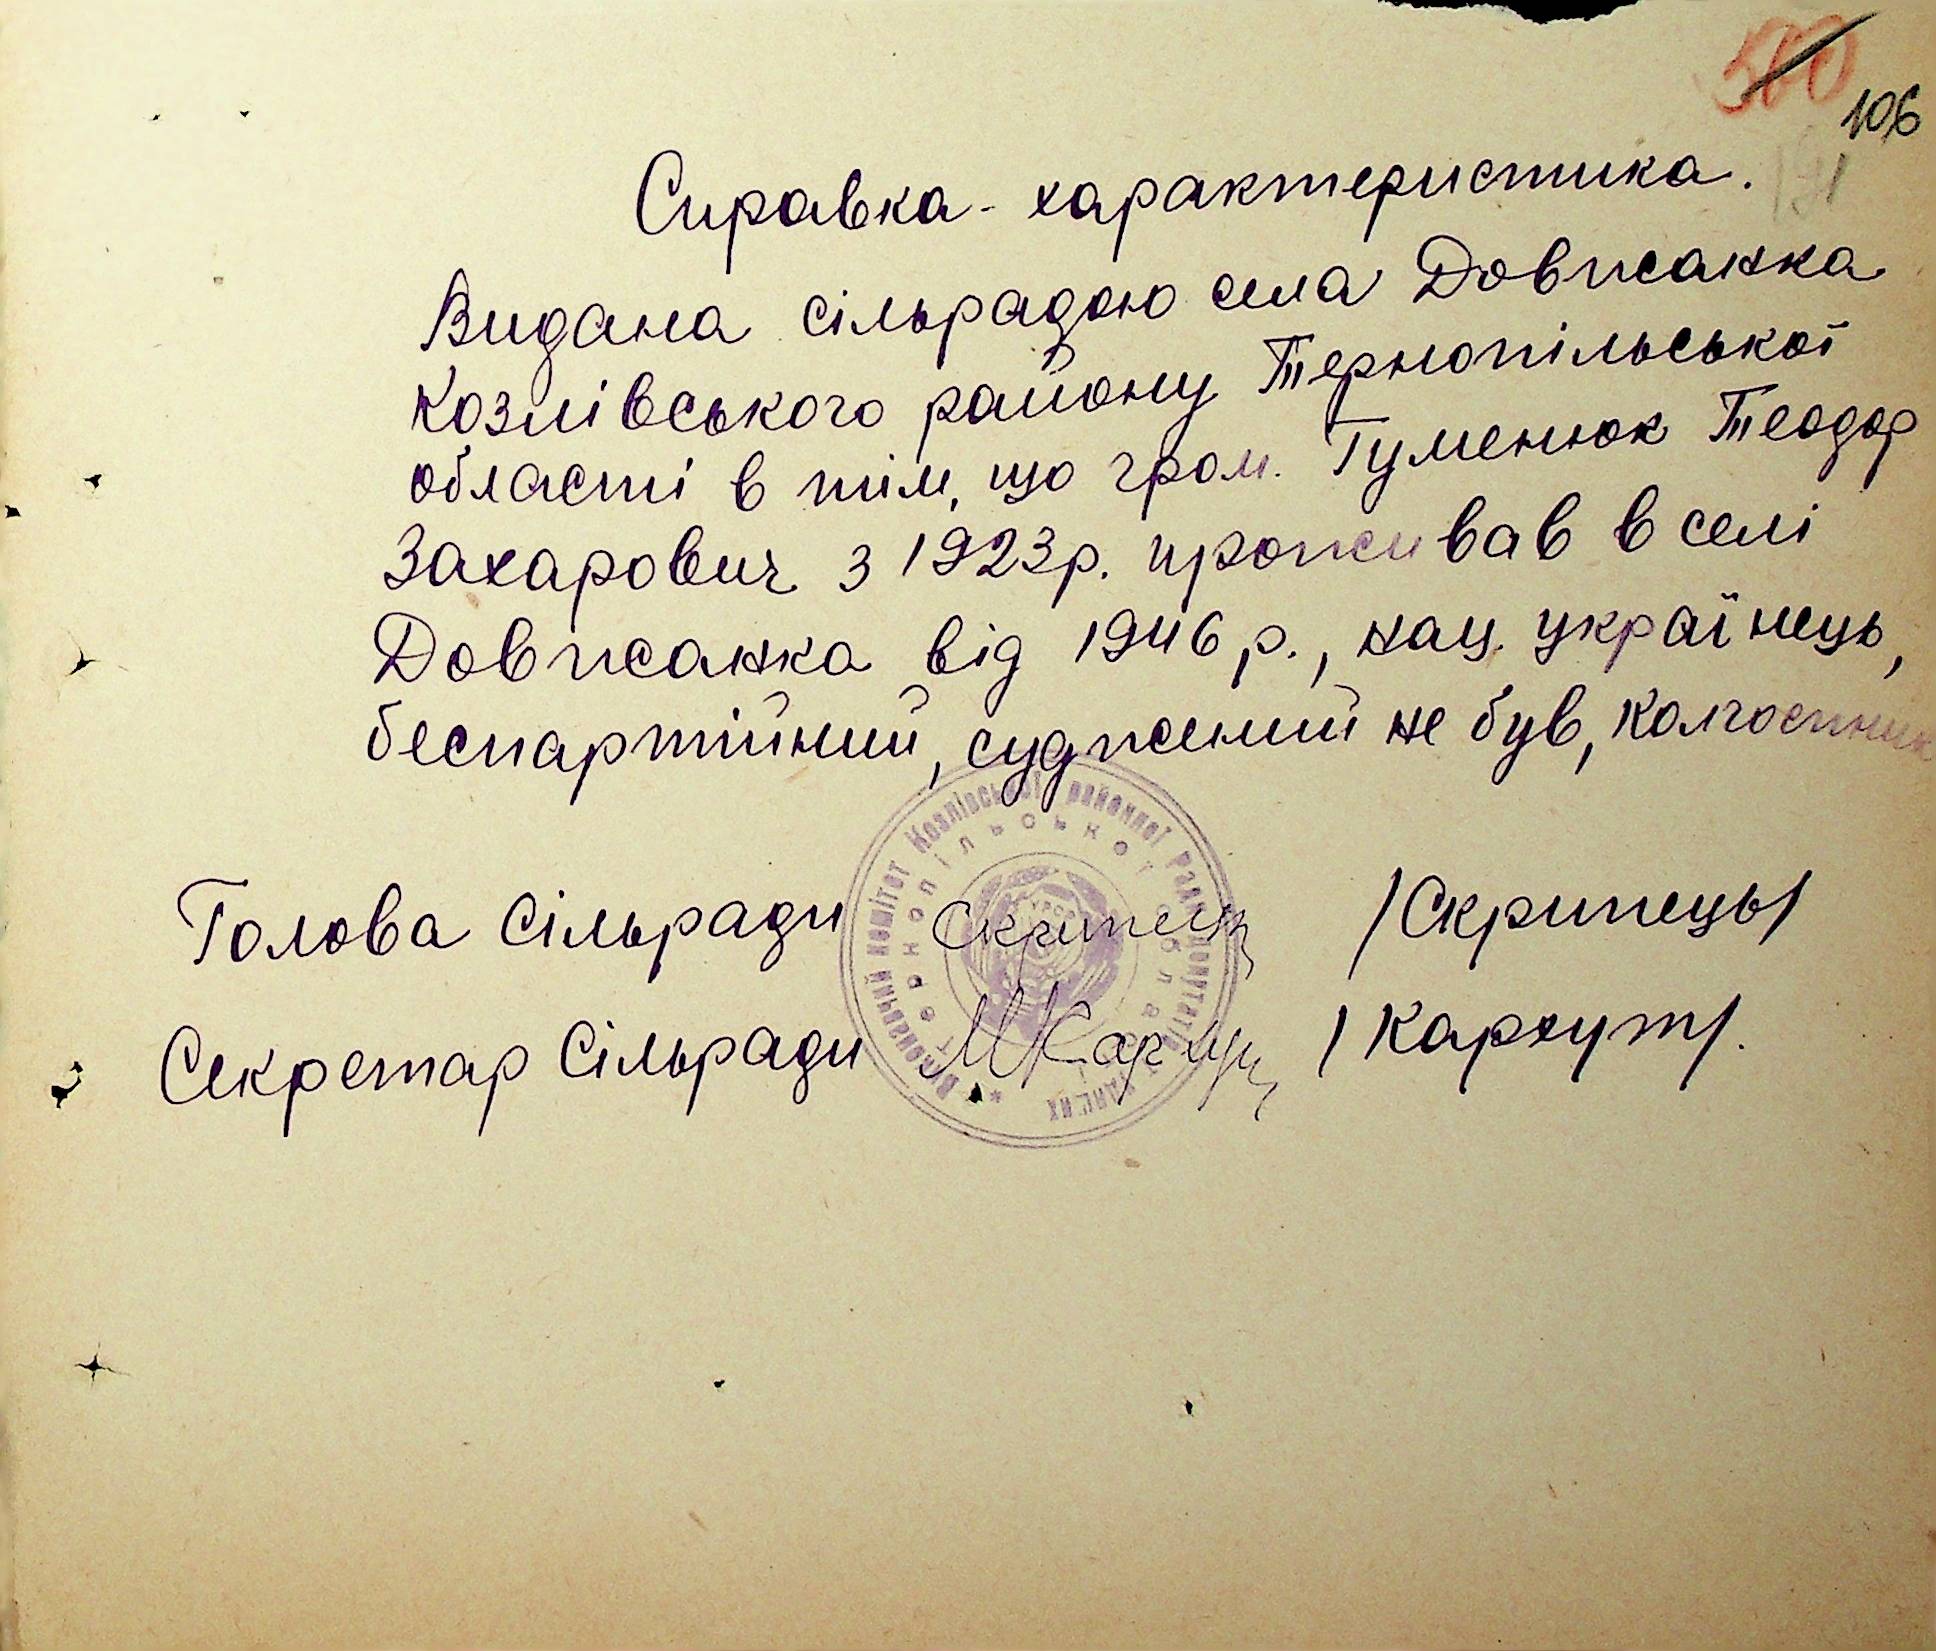 560
106
191
Справка - характеристика.
Видана сільрадою села Довжанка
Козлівського району Тернопільської
області в тім, що гром. Гуменюк Теодор
Захарович з 1923р. проживав в селі
Довжанка від 1946 р., нац. українець,
беспартійний, суджений не був, колгоспник
Голова сільради Скрипець /Скрипець/
Секретар сільради МКархут /Кархут/.
Виконавчий комітет Козлівської районної Ради депутатів трудящих
Тернопільської області
УРСР